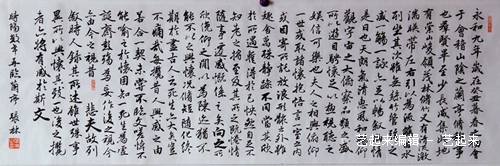 永和九年歲在癸丑暮春之初會
于會稽山陰之蘭亭修禊事
也群賢畢至少長咸集此地
有崇山峻領茂林修竹又有清流激
湍暎帶左右引以為流觴曲水
列坐其次雖無絲竹管弦之
盛一觴一詠亦足以暢敘幽情
是日也天朗氣清惠風和暢仰
觀宇宙之大俯察品類之盛
所以遊目騁懷足以極視聽之
娛信可樂也夫人之相與俯仰
一世或取諸懷抱悟言一室之內
或因寄所託放浪形骸之外雖
趣舍萬殊靜躁不同當其欣
於所遇暫得於己快然自足不
知老之將至及其所之既惓情
隨事遷感慨係之矣向之所
欣俛仰之間以為陳迹猶不
能不以之興懷況修短隨化終
期於盡古人云死生亦大矣豈
不痛哉每攬昔人興感之由
若合一契未嘗不臨文嗟悼不
能喻之於懷固知一死生為虛
誕齊彭殤為妄作後之視今
亦由今之視昔悲夫故列
敘時人錄其所述雖世殊事
異所以興懷其致一也後之攬
者亦將有感於斯文
臨蘭亭 張林
艺起来编辑 - 艺起来